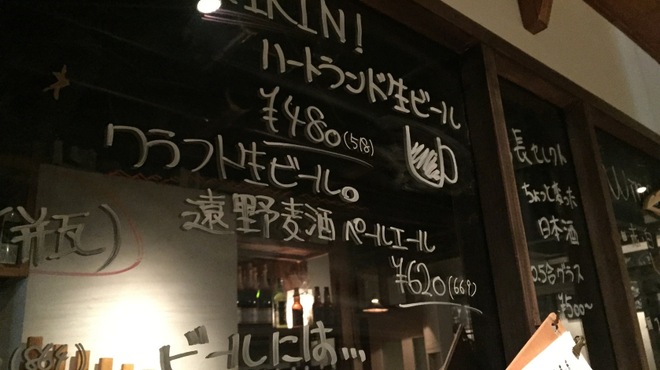 KIRIN!
ハートランド生ビール
¥480(518)
クラフト生ビール。
遠野麦酒 ペールエール
¥620(669)
(瓶)
ビールには…
長セレクト
ちょっと変った
日本酒
0.5合グラス
¥500~